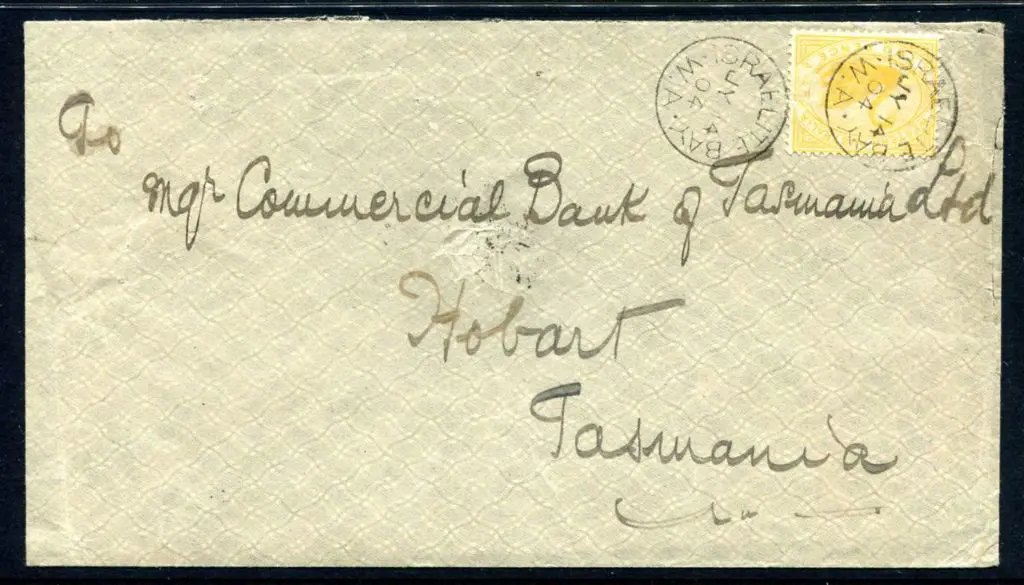 ISRAELITE BAY. W.A.
JY 14
04
ISRAELITE BAY. W.A.
JY 14
04
To
Mgr Commercial Bank of Tasmania Ltd
Hobart
Tasmania